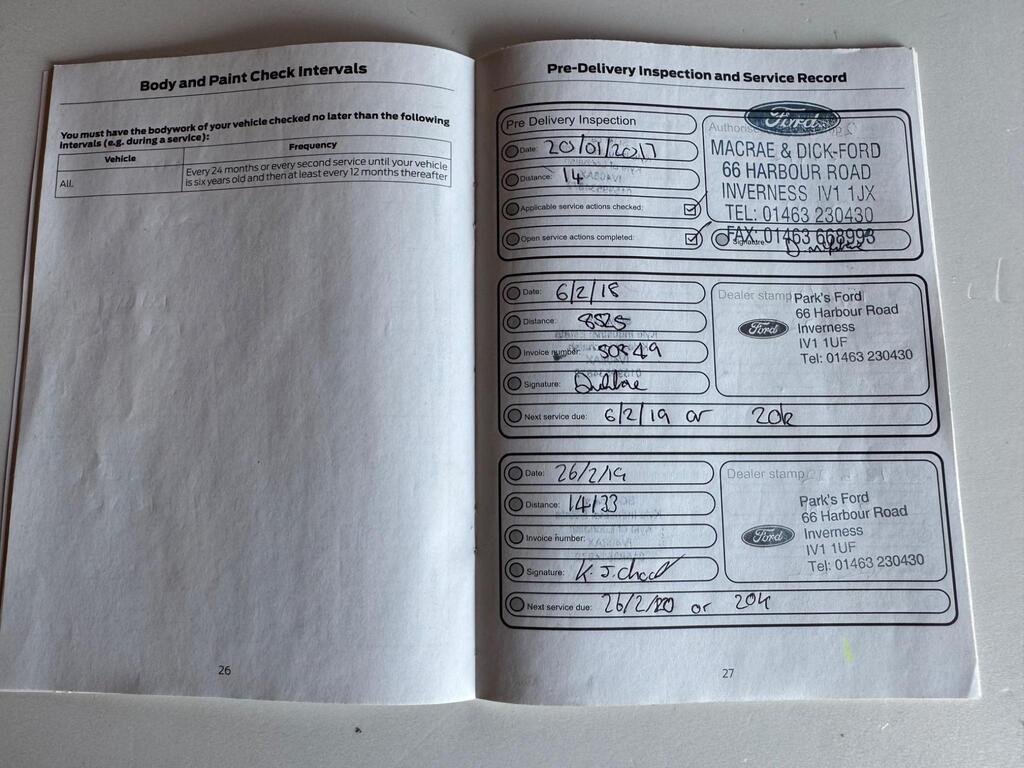 Body and Paint Check Intervals
You must have the bodywork of your vehicle checked no later than the following
intervals (e.g. during a service):
Vehicle Frequency
All. Every 24 months or every second service until your vehicle
is six years old and then at least every 12 months thereafter
26
Pre-Delivery Inspection and Service Record
Pre Delivery Inspection
Date: 20/01/2017
Distance: 14
Applicable service actions checked:
Open service actions completed:
Ford
MACRAE & DICK-FORD
66 HARBOUR ROAD
INVERNESS IV1 1JX
TEL: 01463 230430
FAX: 01463 668993
Signature:
Date: 6/2/18
Distance: 8525
Invoice number: 50849
Signature:
Next service due: 6/2/19 or 20k
Dealer stamp
Ford
Park's Ford
66 Harbour Road
Inverness
IV1 1UF
Tel: 01463 230430
Date: 26/2/19
Distance: 14133
Invoice number:
Signature: K. J.
Next service due: 26/2/20 or 20k
Dealer stamp
Ford
Park's Ford
66 Harbour Road
Inverness
IV1 1UF
Tel: 01463 230430
27